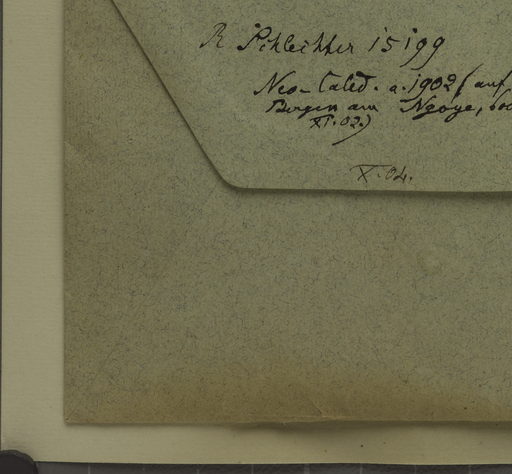 R Schlechter 15199
Neo-Caled. a. 1902 (auf
Bergen am Ngoye, 600
XI. 02.)
X. 04.